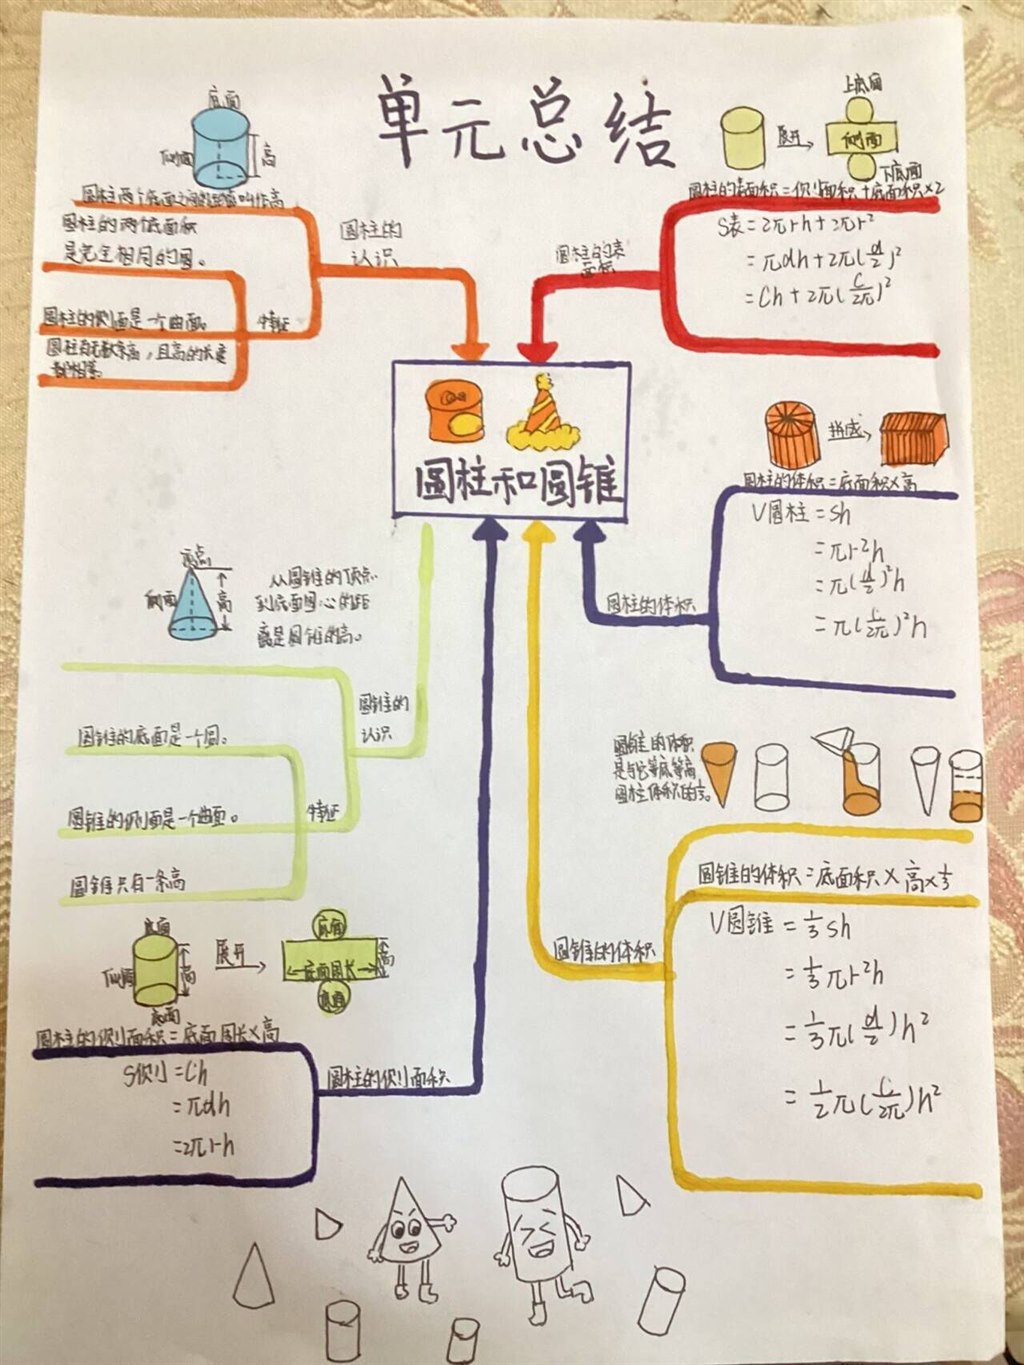 单元总结
底面
侧面
高
圆柱两个底面之间的距离叫作高
圆柱的两个底面积
是完全相同的圆。
圆柱的侧面是一个曲面。
圆柱有无数条高,且高的长度
都相等。
特征
圆柱的
认识
上底面
展开
侧面
下底面
圆柱的表面积=侧面积+底面积×2
S表=2πrh+2πr²
=πdh+2π(d/2)²
=Ch+2π(C/2π)²
圆柱的表
面积
圆柱和圆锥
拼成
圆柱的体积=底面积×高
V圆柱=Sh
=πr²h
=π(d/2)²h
=π(C/2π)²h
圆柱的体积
顶点
侧面
高
从圆锥的顶点
到底面圆心的距
离是圆锥的高。
圆锥的
认识
圆锥的底面是一个圆。
圆锥的侧面是一个曲面。
特征
圆锥只有一条高
圆锥的体积
是与它等底等高
圆柱体积的1/3。
圆锥的体积=底面积×高×1/3
V圆锥=1/3Sh
=1/3πr²h
=1/3π(d/2)h²
=1/2π(C/2π)h²
圆锥的体积
底面
侧面
高
底面
展开
底面
底面周长
高
底面
圆柱的侧面积=底面周长×高
S侧=Ch
=πdh
=2πrh
圆柱的侧面积